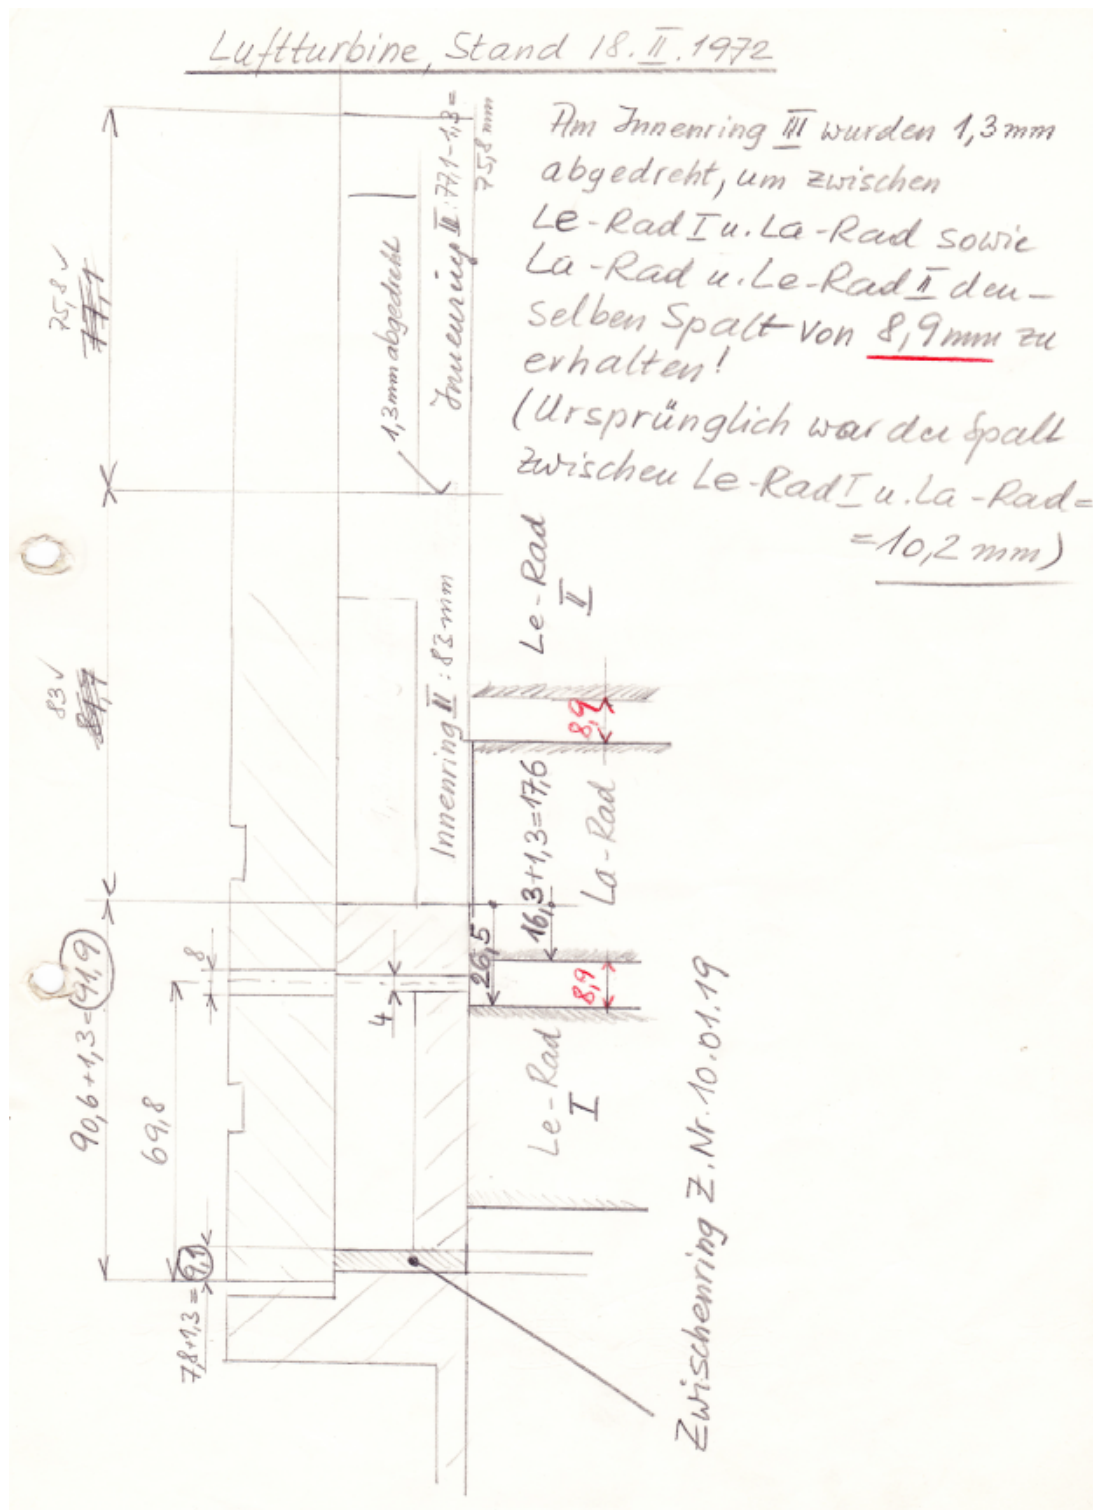 Luftturbine, Stand 18.II.1972
Am Innenring III wurden 1,3 mm
abgedreht, um zwischen
Le-Rad I u. La-Rad sowie
La-Rad u. Le-Rad II den-
selben Spalt von 8,9mm zu
erhalten!
(Ursprünglich war der Spalt
zwischen Le-Rad I u. La-Rad=
=10,2 mm)
75,8 ✓
77,1
1,3mm abgedreht
Innenring III: 77,1-1,3=
75,8 mm
83 ✓
Innenring II: 83mm
Le-Rad
II
8,9
16,3+1,3=17,6
La-Rad
26,5
8,9
8
4
90,6+1,3=91,9
69,8
Le-Rad
I
7,8+1,3=9,1
Zwischenring Z.Nr. 10.01.19